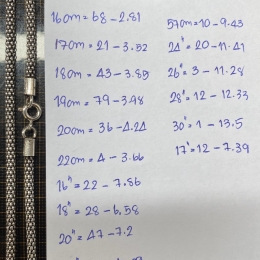 16cm = 68 - 2.81
17cm = 21 - 3.52
18cm = 43 - 3.85
19cm = 79 - 3.98
20cm = 36 - 4.24
22cm = 4 - 3.66
16" = 22 - 7.86
18" = 28 - 6.58
20" = 47 - 7.2
57cm = 10 - 9.43
24" = 20 - 11.41
26" = 3 - 11.28
28" = 12 - 12.33
30" = 1 - 13.5
17" = 12 - 7.39